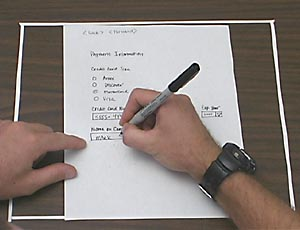 Payment Information
Credit Card Type
Amex
Discover
Mastercard
Visa
Credit Card N
Exp Date
Name on Car